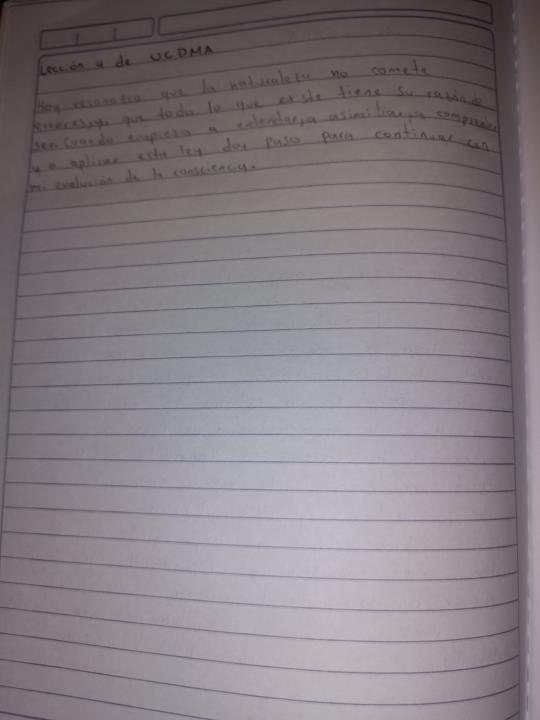 Lección 4 de UCDMA
Hoy reconozco que la naturaleza no comete
errores, ya que todo lo que existe tiene su razón de
ser. Cuando empiezo a entender, a asimilar, a comprender
y a aplicar esta ley doy paso para continuar con
mi evolución de la consciencia.